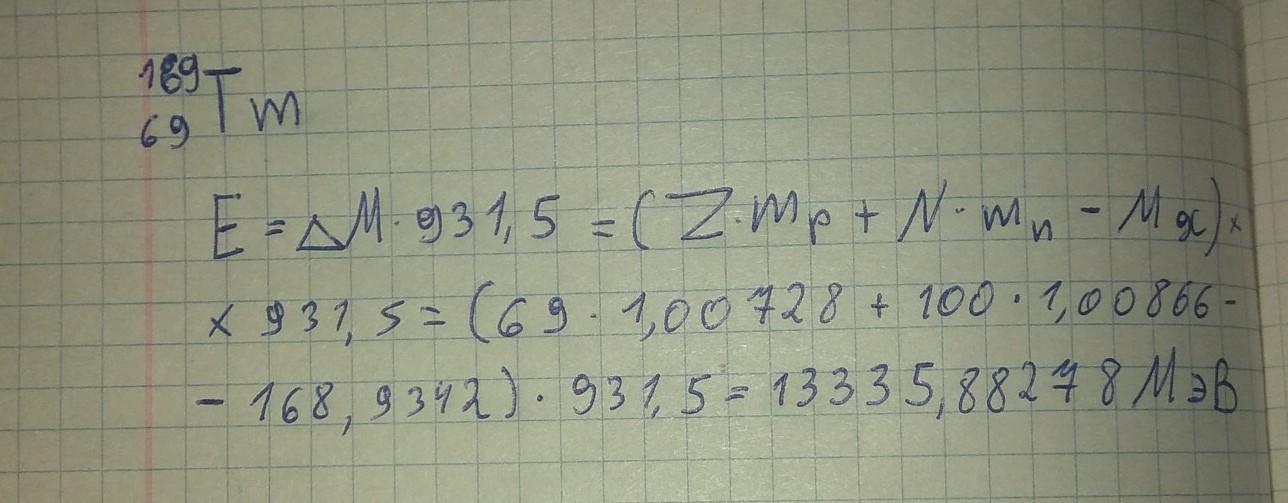 ¹⁶⁹₆₉Tm
E = ΔM · 931,5 = (Z · mₚ + N · mₙ - Mя) ×
× 931,5 = (69 · 1,00728 + 100 · 1,00866 -
- 168,9342) · 931,5 = 13335,88278 МэВ